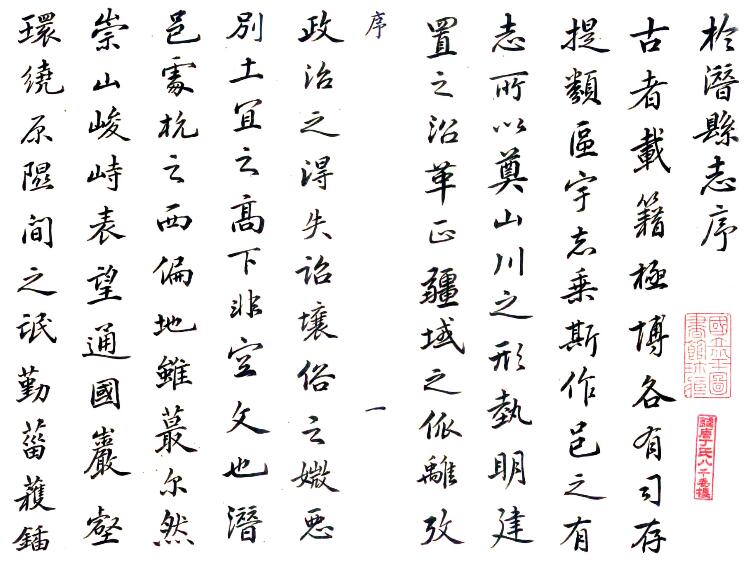 於潛縣志序
古者載籍極博各有司存
提類區宇志乘斯作邑之有
志所以奠山川之形勢明建
置之沿革正疆域之依離攷
序
一
政治之得失詒壤俗之媺惡
別土宜之高下非空文也潛
邑處杭之西偏地雖蕞尔然
崇山峻峙表望通國巖壑
環繞原隰間之氓勤菑穫鐇